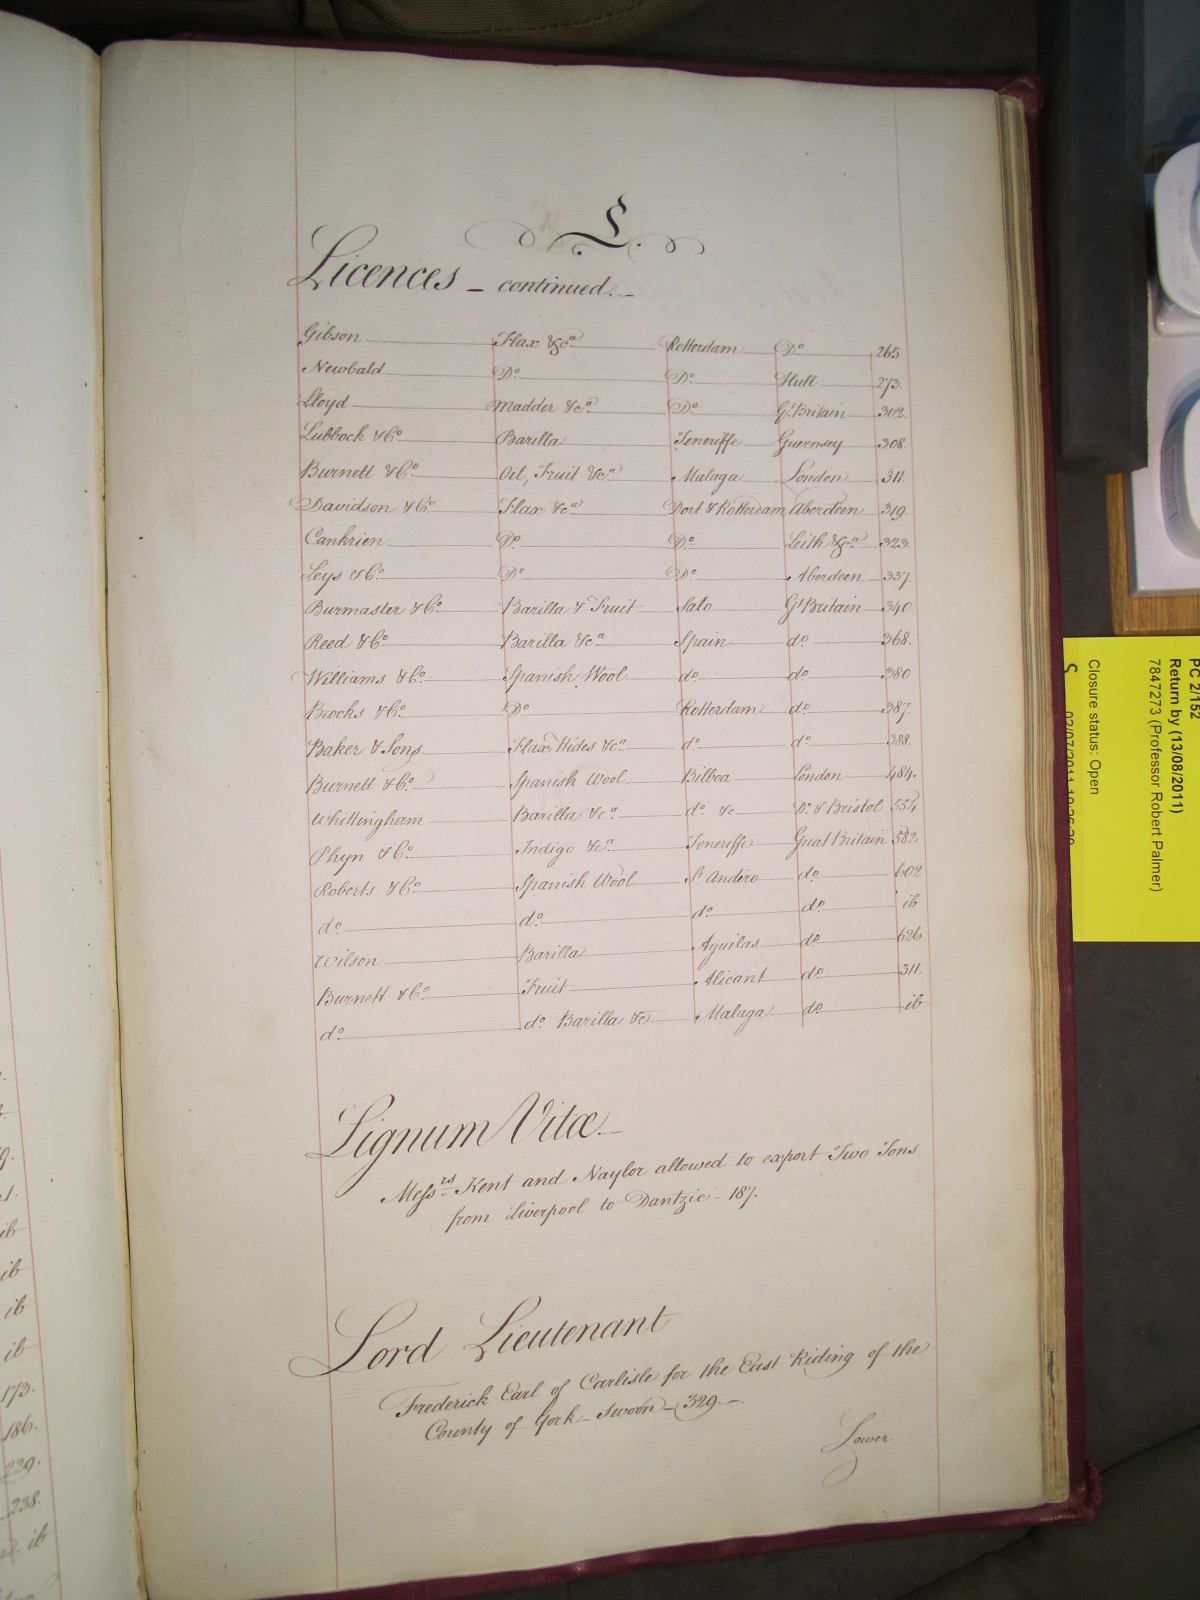 L.
Licences – continued. –
Gibson Flax &c.a Rotterdam Do. 265
Newbald Do. Do. Hull 273.
Lloyd Madder &c.a Do. Gt. Britain 302.
Lubbock & Co. Barilla Teneriffe Guernsey 308.
Burnett & Co. Oil, Fruit &c.a Malaga London 311.
Davidson & Co. Flax &c.a Dort & Rotterdam Aberdeen 319.
Cankrien Do. Do. Leith &c.a 323.
Leys & Co. Do. Do. Aberdeen 337.
Burmaster & Co. Barilla & Fruit Salo Gt. Britain 340.
Reed & Co. Barilla &c.a Spain do. 368.
Williams & Co. Spanish Wool do. do. 380
Brooks & Co. Do. Rotterdam do. 387.
Baker & Sons Flax Hides &c.a do. do. 388.
Burnett & Co. Spanish Wool Bilboa London 484.
Whittingham Barilla &c.a do. &c Do. & Bristol 554
Phyn & Co. Indigo &c.a Teneriffe Great Britain 582
Roberts & Co. Spanish Wool St. Andero do. 602
do. do. do. do. ib
Wilson Barilla Aguilas do. 626
Burnett & Co. Fruit Alicant do. 311.
do. do. Barilla &c Malaga do ib
Lignum Vitæ. –
Messrs. Kent and Naylor allowed to export Two Tons
from Liverpool to Dantzic – 187.
Lord Lieutenant
Frederick Earl of Carlisle for the East Riding of the
County of York – Sworn – 329. –
Lower
9.
ib
ib
ib
ib
173.
186.
229.
238.
ib
PC 2/152
Return by (13/08/2011)
7847273 (Professor Robert Palmer)
Closure status: Open
S
02/07/2011